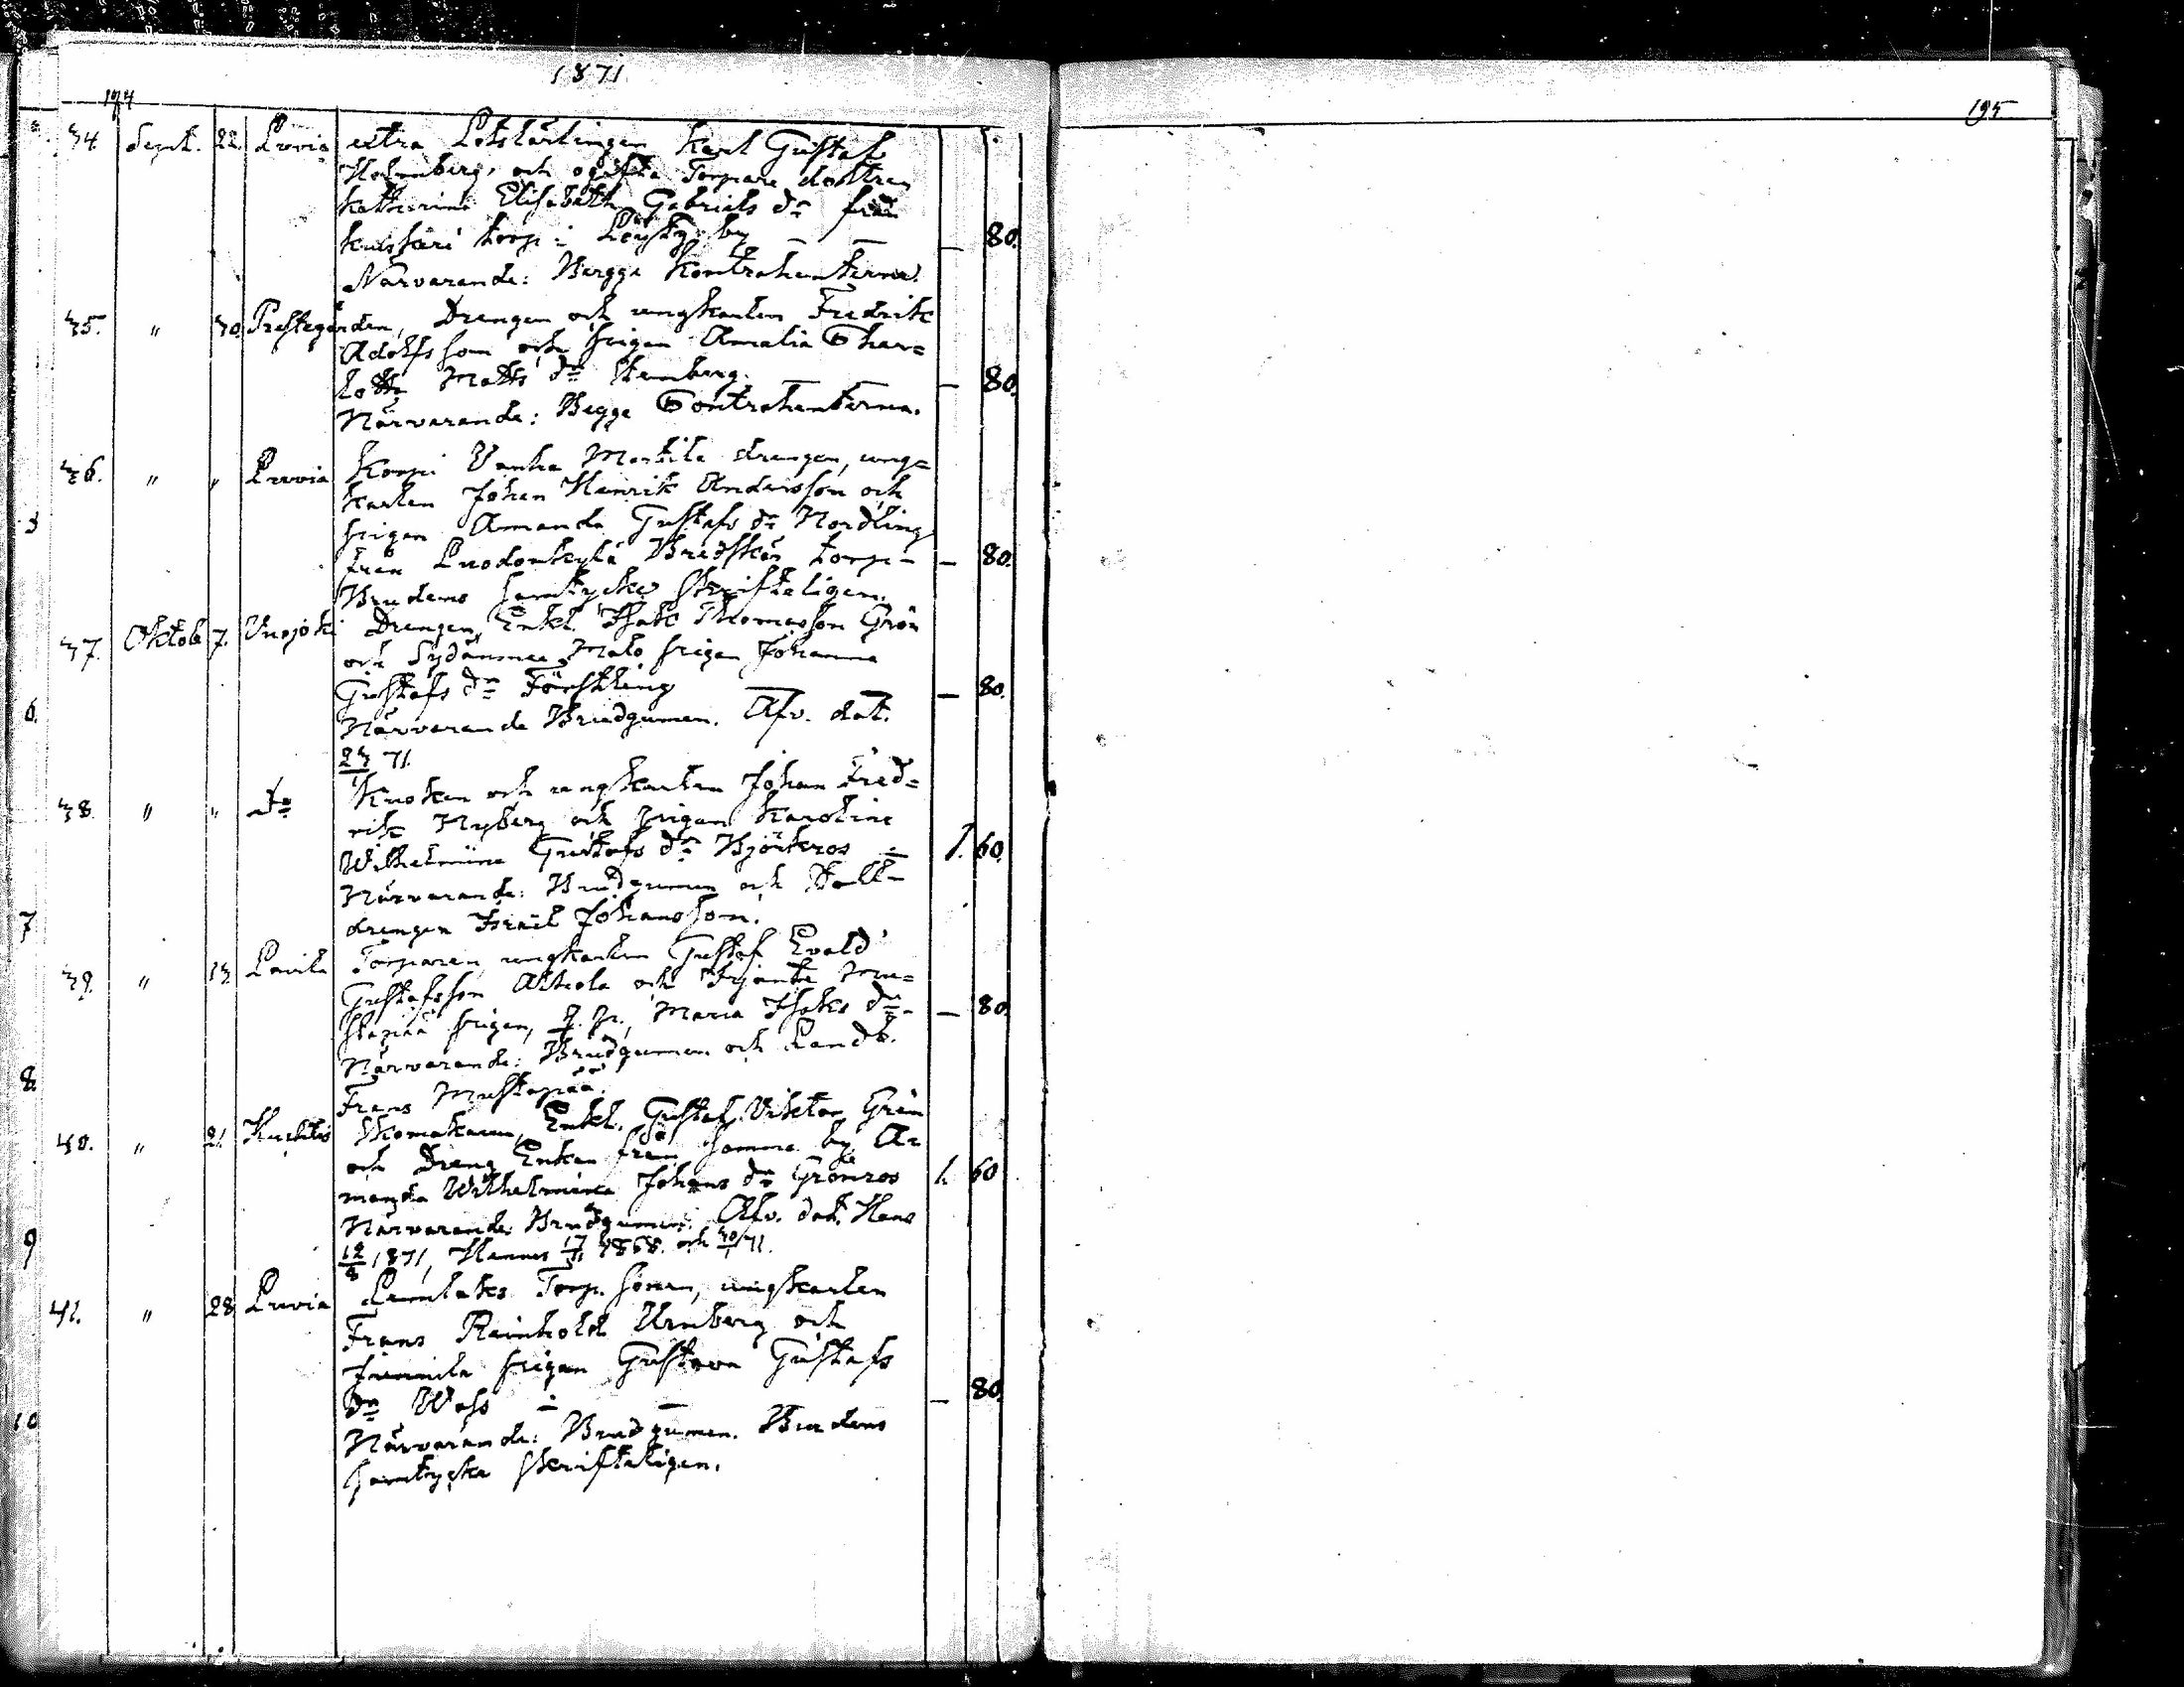 1871
194
195
34. Sept. 22. Luvia extra Lotslärlingen Karl Gustaf
Holmberg, och ogifta Torpare dottren
Katharina Elisabeth Gabriels dr från
torp i Löytty by — — — 80.
Närvarande: Begge Kontrahenterna.
35. " 30. Prestegården, Drengen och ungkarlen Fredrik
Adolfsson och Pigan Amalia Char=
lotta Matts dr Stenberg. — — — 80.
Närvarande: Begge Contrahenterna.
36. " " Luvia Korpi Vanha Martila drengen, ung=
karlen Johan Henrik Andersson och
pigan Amanda Gustafs dr Nordling
från Luodonkylä Bredskär torp — — 80.
Brudens samtycke skrifteligen.
37. Oktob. 7. Vuojoki Drengen, Enkl. Isak Thomasson Grön
och Sydänmaa Malo pigan Johanna
Gustafs dr Förstling — — 80.
Närvarande Brudgumen. Afv. dat.
71.
38. " " Do Kusken och ungkarlen Johan Fred=
rik Nyberg och Pigan Karolina
Wilhelmina Gustafs dr Björkros — 1. 60.
Närvarande: Brudgumen och Stall-
drengen Israel Johansson.
39. " 13. Lavila Torparen ungkarlen Gustaf Evald
Gustafsson Ahola och Irjante Mu=
stapää pigan, Maria Isaks dr — — 80.
Närvarande: Brudgumen och Landb.
Frans Mustapää.
40. " 21. Kuchtis Skomakaren, Enkl. Gustaf Viktor Grön
och Dreng Enkan från samma by A=
manda Wilhelmina Johans dr Grönros 1. 60
Närvarande: Brudgumen. Afv. dat. Hans
12/8 1871, Hennes 1868. och 71.
41. " 28. Luvia Torp. sonen, ungkarlen
Frans Reinhold Urnberg och
pigan Gustava Gustafs
dr Wass — — — 80.
Närvarande: Brudgumen. Brudens
samtycke skrifteligen.
3
6.
7
8.
9
10